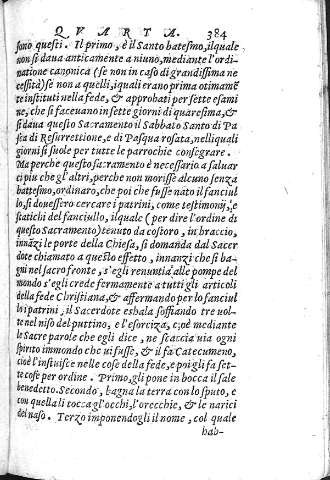 QVARTA. 384
sono questi. Il primo, è il Santo batesmo, ilquale
non si daua anticamente a niuno, mediante l'ordi-
natione canonica (se non in caso di grandissima ne
cessità) se non a quelli, iquali erano prima otimamē
te instituti nella fede, & approbati per sette esami
ne, che si faceuano in sette giorni di quaresima, &
si daua questo Sacramento il Sabbato Santo di Pa
sca di Resurrettione, e di Pasqua rosata, nelliquali
giorni si suole per tutte le parrochie consegrare.
Ma perche questo sacramento è necessario a saluar
ci piu che gl'altri, perche non morisse alcuno senza
battesmo, ordinaro, che poi che fusse nato il fanciul
lo, si douessero cercare i patrini, come testimonij, e
statichi del fanciullo, ilquale (per dire l'ordine di
questo Sacramento) tenuto da costoro, in braccio,
innāzi le porte della Chiesa, si domanda dal Sacer
dote chiamato a questo effetto, innanzi che si ba-
gni nel sacro fronte, s'egli renuntia alle pompe del
mondo s'egli crede fermamente a tutti gli articoli
della fede Christiana, & affermando per lo fanciul
lo i patrini, il Sacerdote eshala soffiando tre uol-
te nel uiso del puttino, e l'esorciza, cioè mediante
le Sacre parole che egli dice, ne scaccia uia ogni
spirito immondo che ui fusse, & il fa Catecumeno,
cioè l'instuisce nelle cose della fede, e poi gli fa set-
te cose per ordine. Primo, gli pone in bocca il sale
benedetto. Secondo, bagna la terra con lo sputo, e
con quella li tocca gl'occhi, l'orecchie, & le narici
del naso. Terzo imponendogli il nome, col quale
hab-